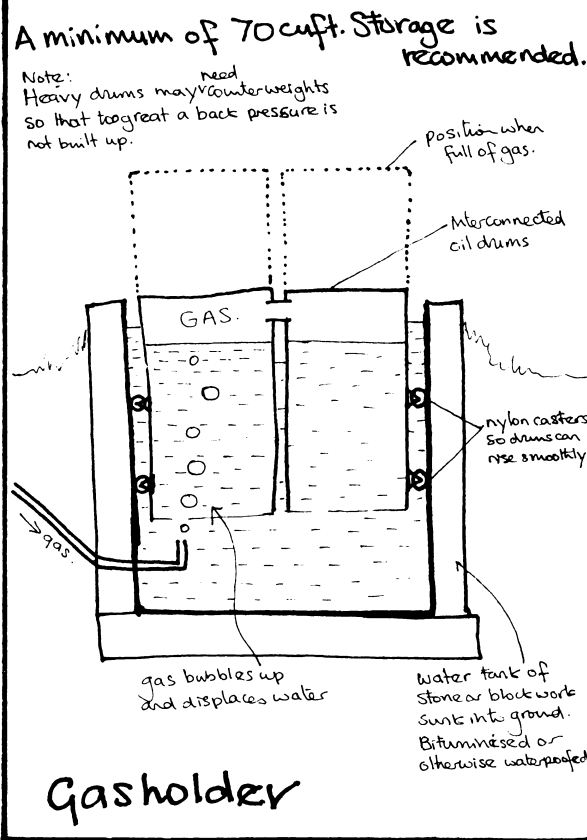 A minimum of 70 cuft. Storage is
recommended.
Note:
Heavy drums may need counterweights
so that too great a back pressure is
not built up.
position when
full of gas.
Interconnected
oil drums
GAS.
nylon casters
so drums can
rise smoothly
→ gas.
gas bubbles up
and displaces water
water tank of
stone or blockwork
sunk into ground.
Bituminised or
otherwise waterproofed
Gasholder